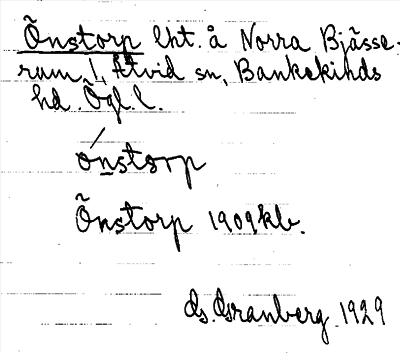 Õnstorp lht. å Norra Bjässe-
rum, Åtvid sn, Bankekinds
hd. Ögl. l.
ónstorp
Õnstorp 1909 kb.
Gs. Granberg 1929